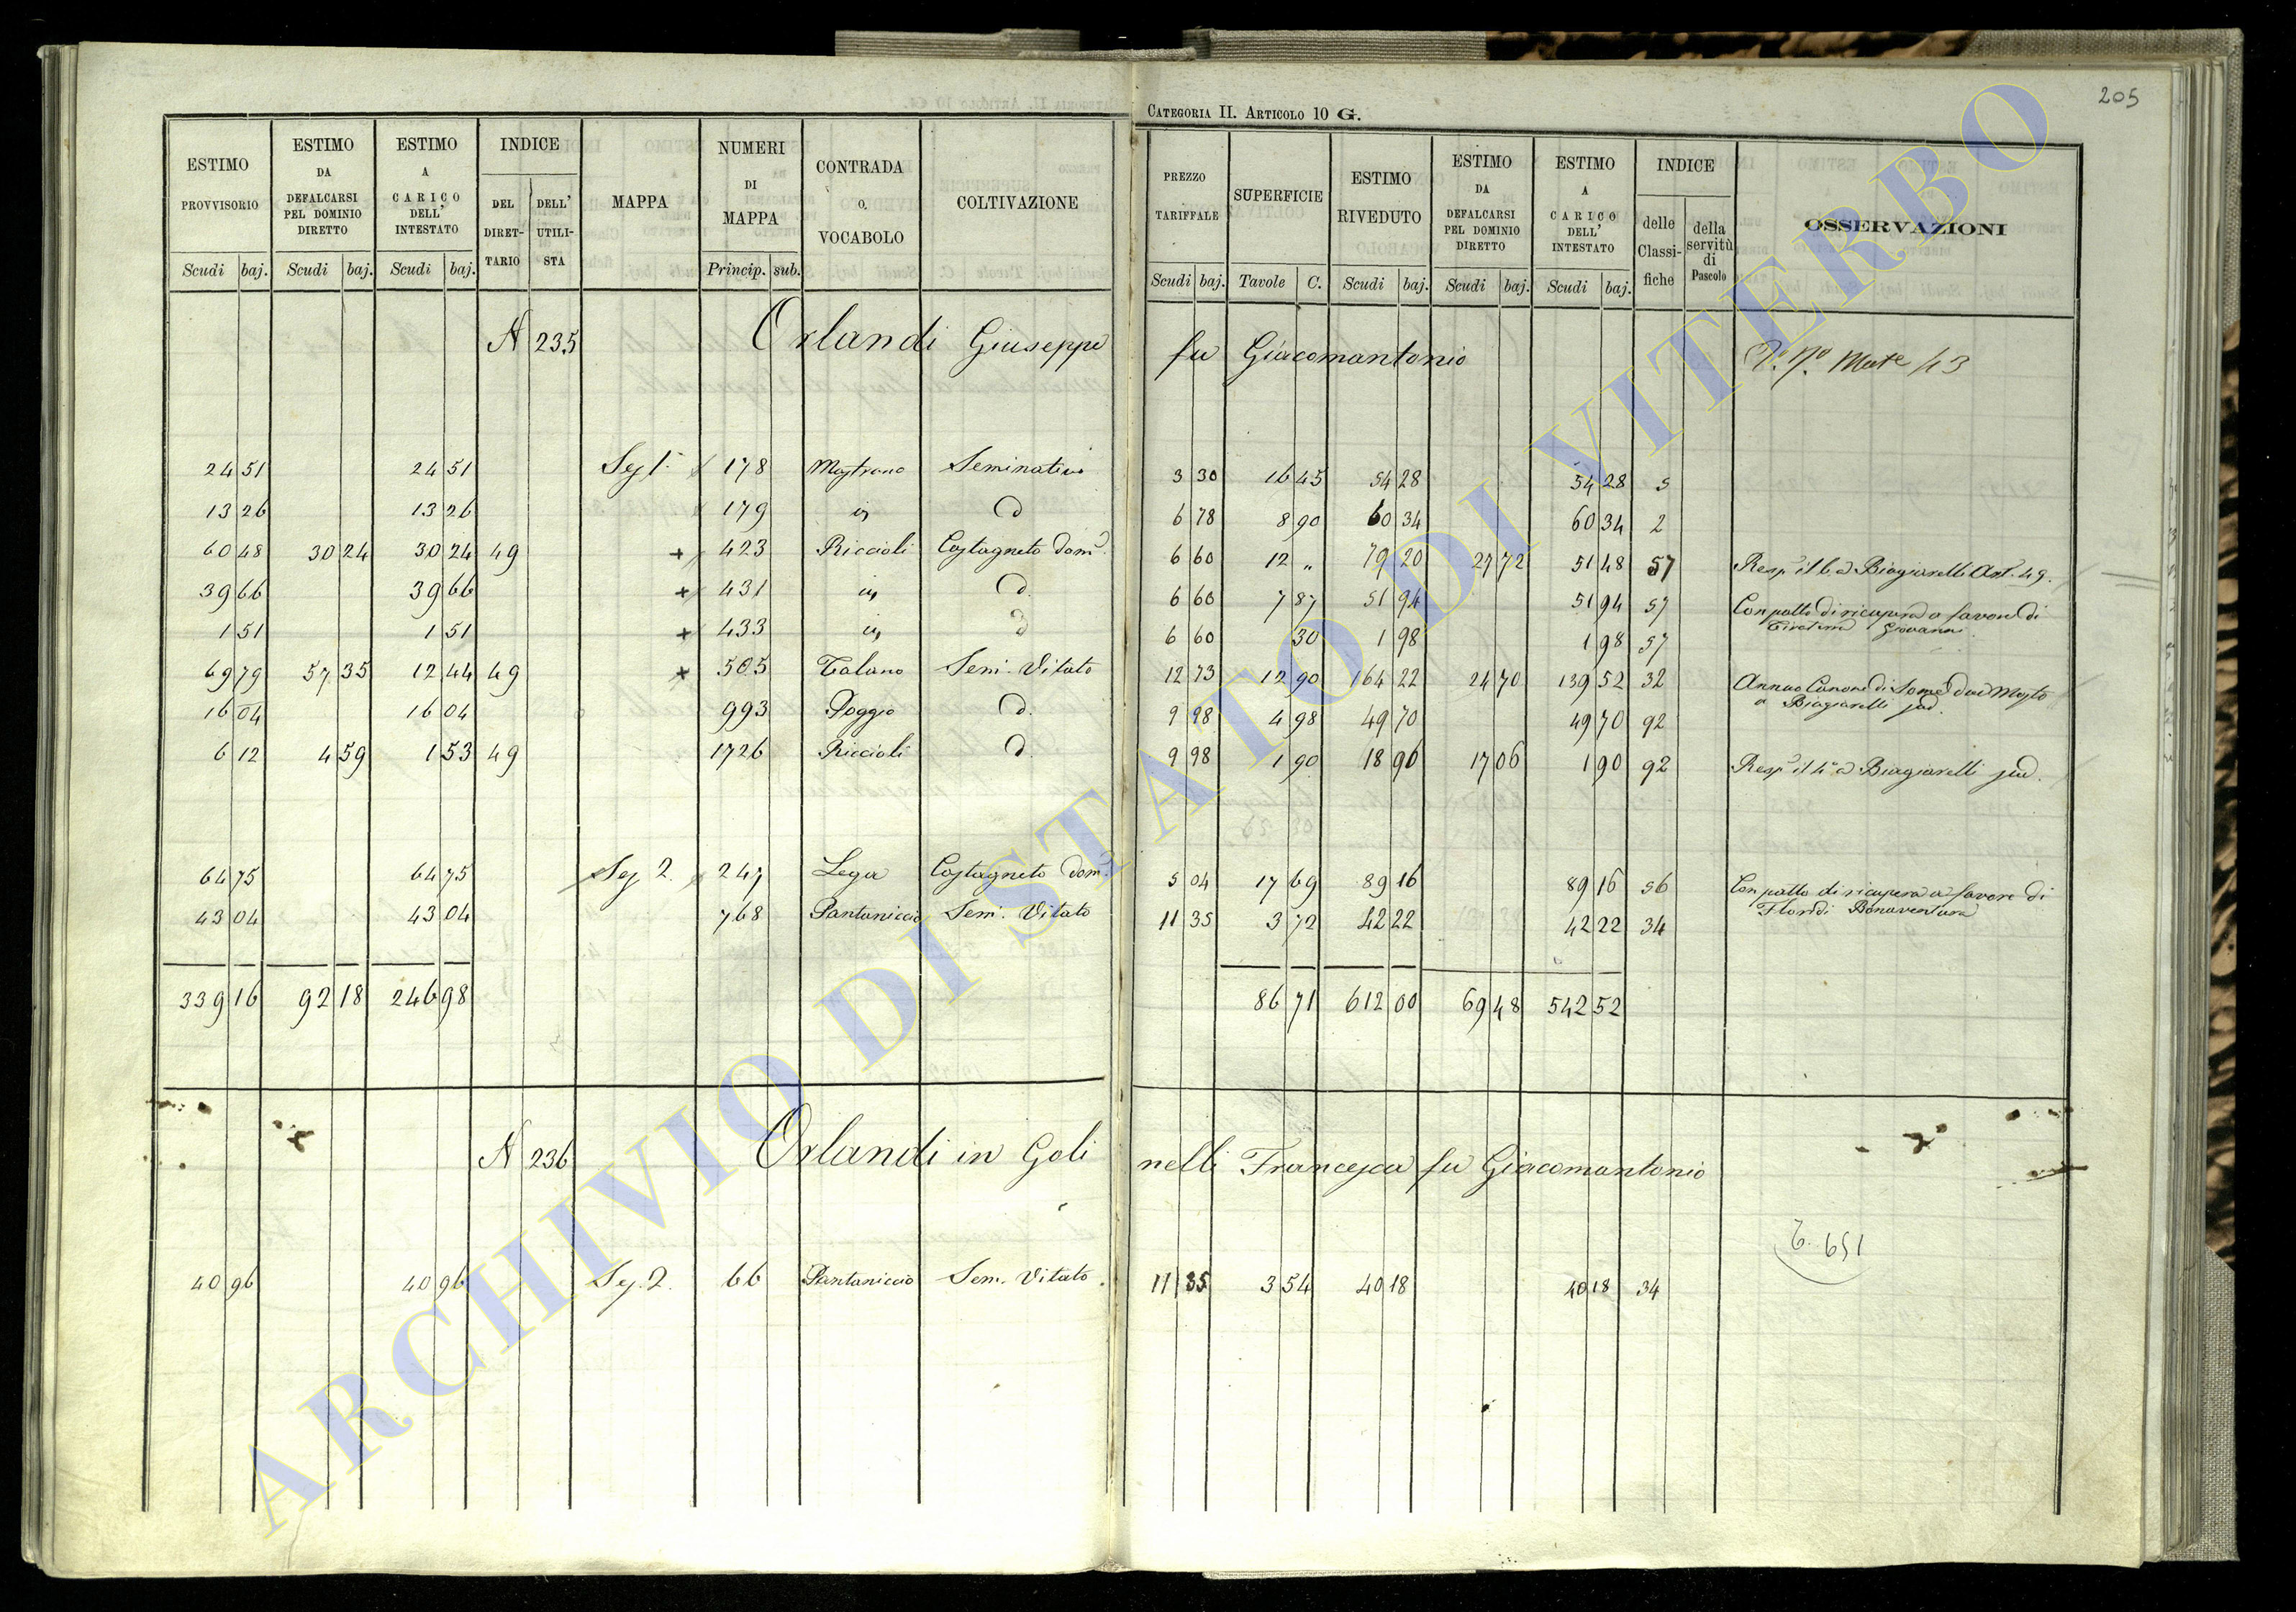 205
CATEGORIA II. ARTICOLO 10 G.
ESTIMO PROVVISORIO | ESTIMO DA DEFALCARSI PEL DOMINIO DIRETTO | ESTIMO A CARICO DELL' INTESTATO | INDICE DEL DIRETTARIO | DELL' UTILISTA | MAPPA | NUMERI DI MAPPA | CONTRADA O VOCABOLO | COLTIVAZIONE | PREZZO TARIFFALE | SUPERFICIE | ESTIMO RIVEDUTO | ESTIMO DA DEFALCARSI PEL DOMINIO DIRETTO | ESTIMO A CARICO DELL' INTESTATO | INDICE delle Classifiche | della servitù di Pascolo | OSSERVAZIONI
Scudi | baj. | Scudi | baj. | Scudi | baj. | Princip. | sub. | Scudi | baj. | Tavole | C. | Scudi | baj. | Scudi | baj. | Scudi | baj.
N 235 Orlandi Giuseppe fu Giacomantonio
24 51 | 24 51 | Sez 1ª | 178 | Mastrano | Seminativo | 3 30 | 16 45 | 54 28 | 54 28 | 5
13 26 | 13 26 | 179 | is | d | 6 78 | 8 90 | 60 34 | 60 34 | 2
60 48 | 30 24 | 30 24 | 49 | + | 423 | Riccioli | Castagneto dom. | 6 60 | 12 " | 79 20 | 27 72 | 51 48 | 57 | Biagiarelli Art. 49.
39 66 | 39 66 | + | 431 | is | d. | 6 60 | 7 87 | 51 94 | 51 94 | 57 | Con patto di ricupera a favore di
Giovanni
1 51 | 1 51 | + | 433 | is | d | 6 60 | 30 | 1 98 | 1 98 | 57
69 79 | 57 35 | 12 44 | 49 | + | 505 | Talano | Sem. Vitato | 12 73 | 12 90 | 164 22 | 24 70 | 139 52 | 32 | Annuo Canone di Some due Mosto
a Biagiarelli sud.
16 04 | 16 04 | 993 | Poggio | d. | 9 98 | 4 98 | 49 70 | 49 70 | 92
6 12 | 4 59 | 1 53 | 49 | 1726 | Riccioli | d. | 9 98 | 1 90 | 18 96 | 17 06 | 1 90 | 92 | Biagiarelli sud.
64 75 | 64 75 | Sez 2. | 247 | Lega | Castagneto dom. | 5 04 | 17 69 | 89 16 | 89 16 | 56 | Con patto di ricupera a favore di
Floridi Bonaventura
43 04 | 43 04 | 768 | Pantaniccio | Sem. Vitato | 11 35 | 3 72 | 42 22 | 42 22 | 34
339 16 | 92 18 | 246 98 | 86 71 | 612 00 | 69 48 | 542 52
N 236 Orlandi in Golinelli Francesca fu Giacomantonio
40 96 | 40 96 | Sez. 2. | 66 | Pantaniccio | Sem. Vitato. | 11 35 | 3 54 | 40 18 | 40 18 | 34
ARCHIVIO DI STATO DI VITERBO